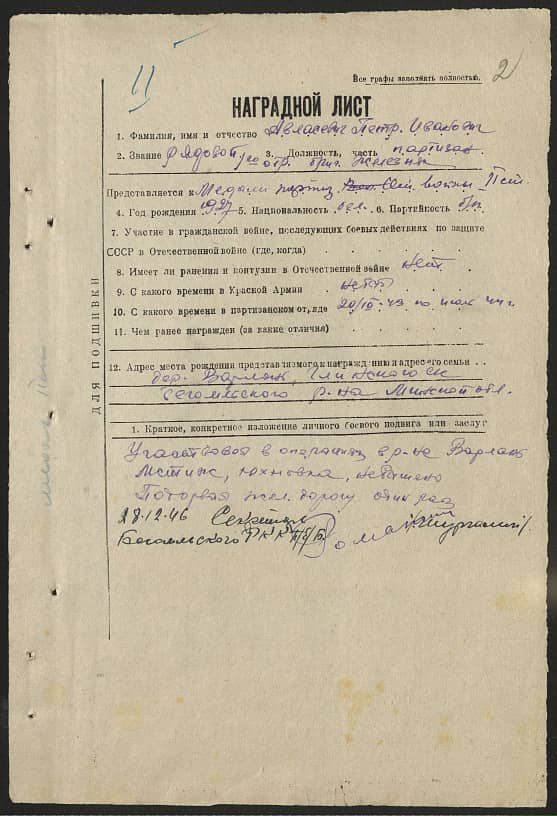 11
Все графы заполнять полностью.
2
НАГРАДНОЙ ЛИСТ
1. Фамилия, имя и отчество Авласевич Петр Иванович
2. Звание Рядовой 3. Должность, часть партизан
отр. бриг. Железняк
Представляется к Медали партиз. войны II ст.
4. Год рождения 1927 5. Национальность бел. 6. Партийность б/п
7. Участие в гражданской войне, последующих боевых действиях по защите
СССР в Отечественной войне (где, когда)
8. Имеет ли ранения и контузии в Отечественной войне Нет
9. С какого времени в Красной Армии Нет
10. С какого времени в партизанском отряде по июль 44 г.
11. Чем ранее награжден (за какие отличия)
12. Адрес места рождения представляемого к награждению и адрес его семьи
дер. Варлань,
р-на Минской обл.
1. Краткое, конкретное изложение личного боевого подвига или заслуг
Участвовал в операциях в р-не Варлань
Мстиж, Юхновка,
Подорвал жел. дорогу один раз
28.12.46 Секретарь
Бегомльского РК КП(б)Б
ДЛЯ ПОДШИВКИ